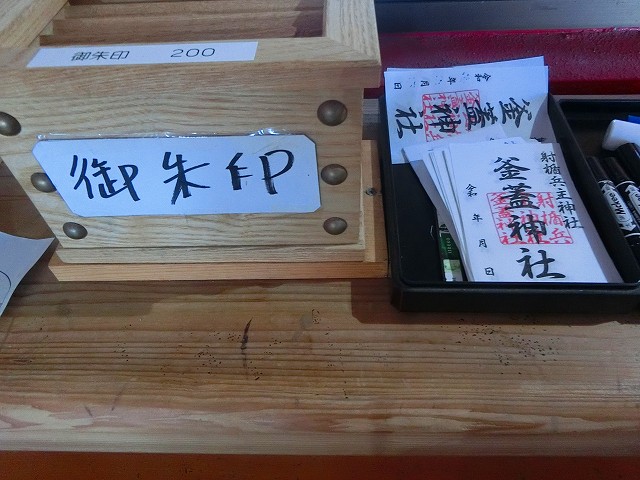 御朱印 200
御朱印
令和 年 月 日
釜蓋神社
射楯兵主神社
釜蓋神社
令和 年 月 日
射楯兵